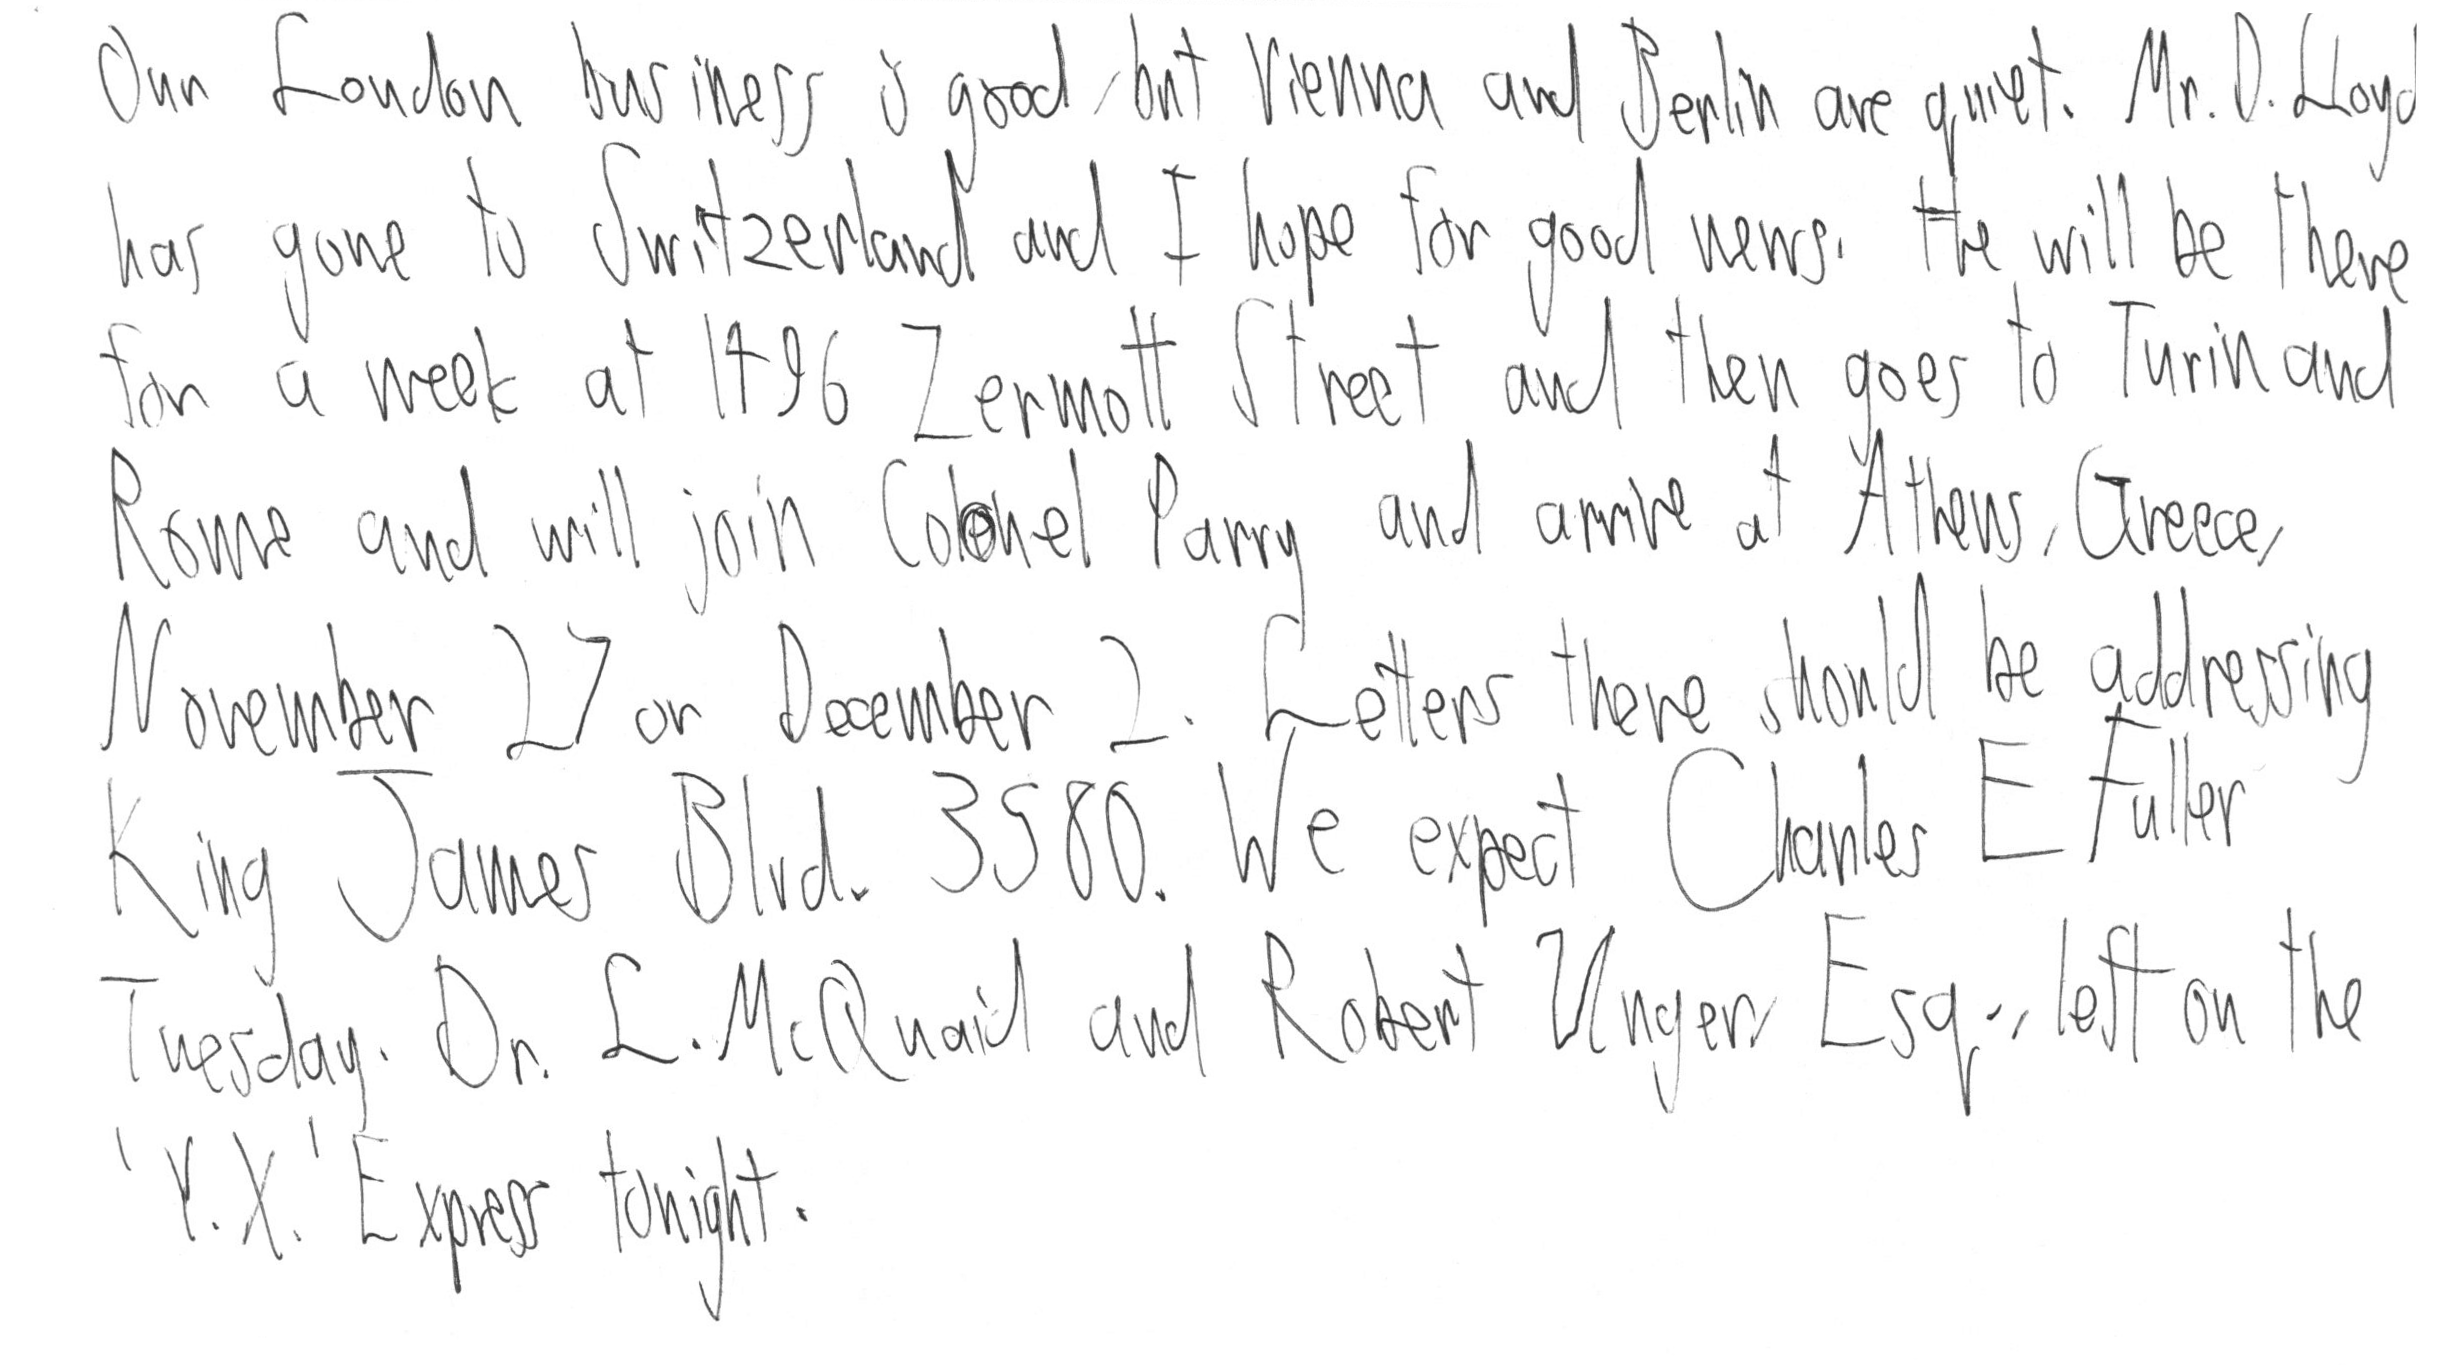 Our London business is good, but Vienna and Berlin are quiet. Mr. D. Lloyd
has gone to Switzerland and I hope for good news. He will be there
for a week at 1496 Zermott Street and then goes to Turin and
Rome and will join Colonel Parry and arrive at Athens, Greece,
November 27 or December 2. Letters there should be addressing
King James Blvd. 3580. We expect Charles E Fuller
Tuesday. Dr. L. McQuaid and Robert Unger, Esq., left on the
'Y.X.' Express tonight.